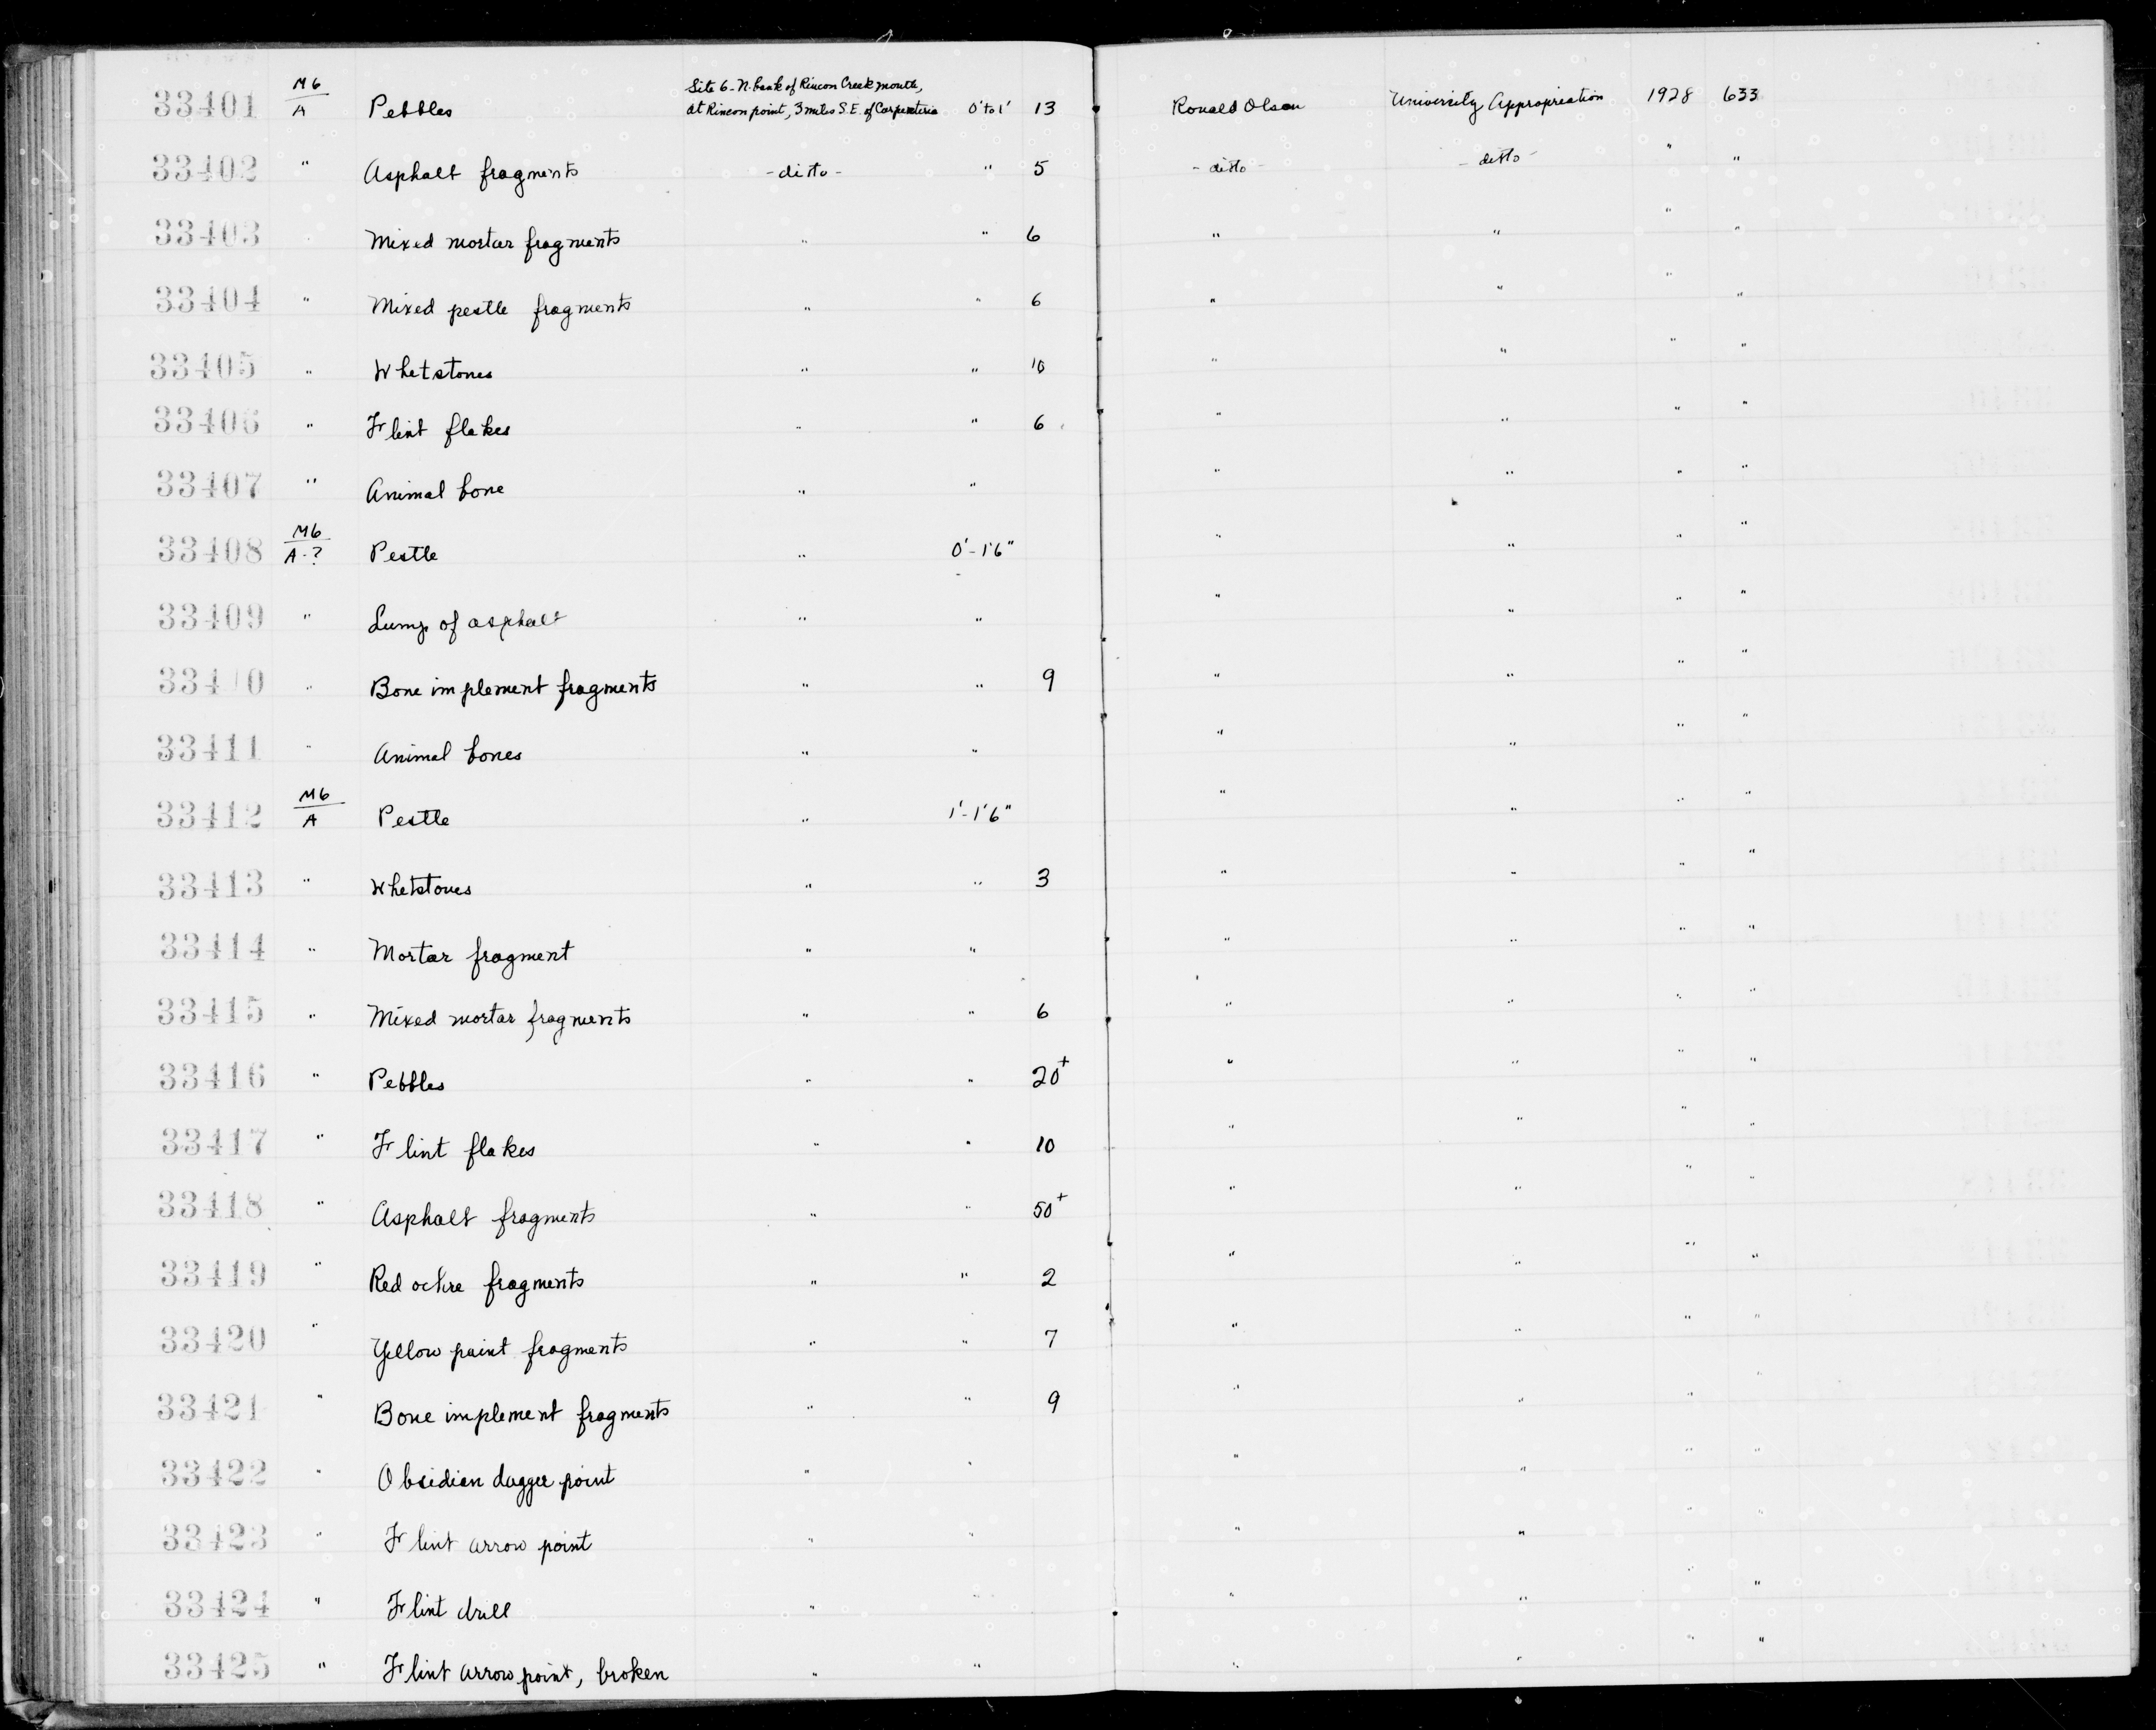 33401 M6/A Pebbles Site 6-N. bank of Rincon Creek mouth, at Rincon point, 3 miles S.E. of Carpenteria 0' to 1' 13 Ronald Olson University Appropriation 1928 633
33402 " Asphalt fragments -ditto- " 5 -ditto- -ditto- " "
33403 Mixed mortar fragments " " 6 " " " "
33404 " Mixed pestle fragments " " 6 " " " "
33405 " Whetstones " " 10 " " " "
33406 " Flint flakes " " 6 " " " "
33407 " Animal bone " " " " " "
33408 M6/A-? Pestle " 0'-1'6" " " " "
33409 " Lump of asphalt " " " " " "
33410 " Bone implement fragments " " 9 " " " "
33411 " Animal bones " " " " " "
33412 M6/A Pestle " 1'-1'6" " " " "
33413 " Whetstones " " 3 " " " "
33414 " Mortar fragment " " " " " "
33415 " Mixed mortar fragments " " 6 " " " "
33416 " Pebbles " " 20+ " " " "
33417 " Flint flakes " " 10 " " " "
33418 " Asphalt fragments " " 50+ " " " "
33419 " Red ochre fragments " " 2 " " " "
33420 " Yellow paint fragments " " 7 " " " "
33421 " Bone implement fragments " " 9 " " " "
33422 " Obsidian dagger point " " " " " "
33423 " Flint arrow point " " " " " "
33424 " Flint drill " " " " " "
33425 " Flint arrow point, broken " " " " " "